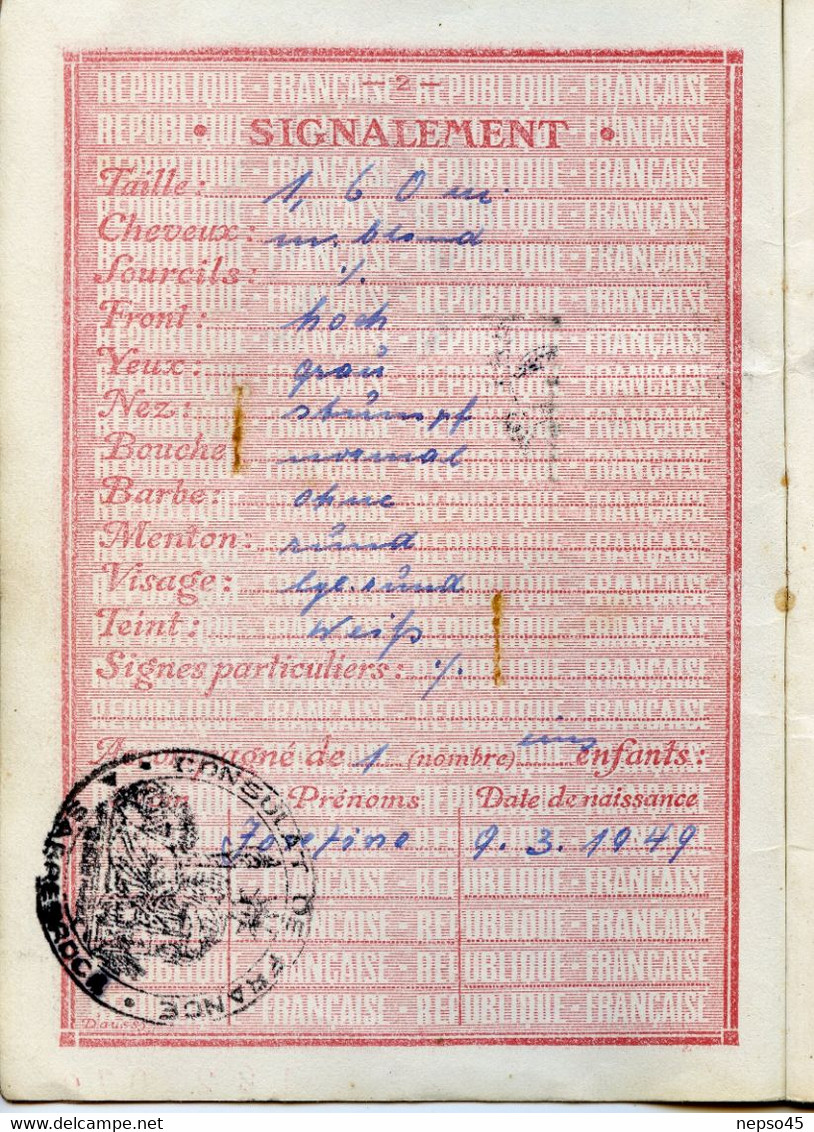 — 2 —
• SIGNALEMENT •
Taille: 1,60 m.
Cheveux: m. blond
Sourcils: ·/.
Front: hoch
Yeux: grau
Nez: stumpf
Bouche normal
Barbe: ohne
Menton: rund
Visage: lgl. rund
Teint: Weiß
Signes particuliers: ·/.
Accompagné de 1 (nombre) enfants:
Prénoms Date de naissance
Josefine 9. 3. 1949
CONSULAT DE FRANCE
SARREBRUCK
REPUBLIQUE - FRANÇAISE - REPUBLIQUE - FRANÇAISE
delcampe.net
nepso45